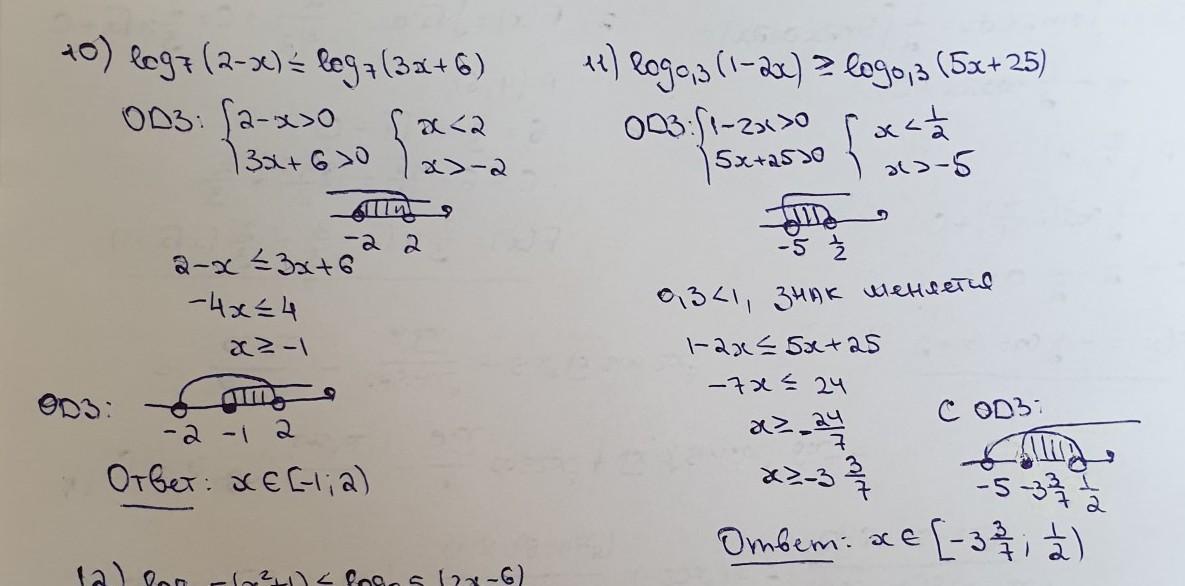 10) log₇(2-x) ≤ log₇(3x+6)
ОДЗ: { 2-x>0 { x<2
3x+6>0 x>-2
-2 2
2-x ≤ 3x+6
-4x ≤ 4
x ≥ -1
ОДЗ:
-2 -1 2
Ответ: x ∈ [-1; 2)
11) log₀,₃(1-2x) ≥ log₀,₃(5x+25)
ОДЗ: { 1-2x>0 { x < 1/2
5x+25>0 x>-5
-5 1/2
0,3<1, знак меняется
1-2x ≤ 5x+25
-7x ≤ 24
x ≥ -24/7
x ≥ -3 3/7
С ОДЗ:
-5 -3 3/7 1/2
Ответ: x ∈ [-3 3/7; 1/2)
(x²+1) ≤ (2x-6)